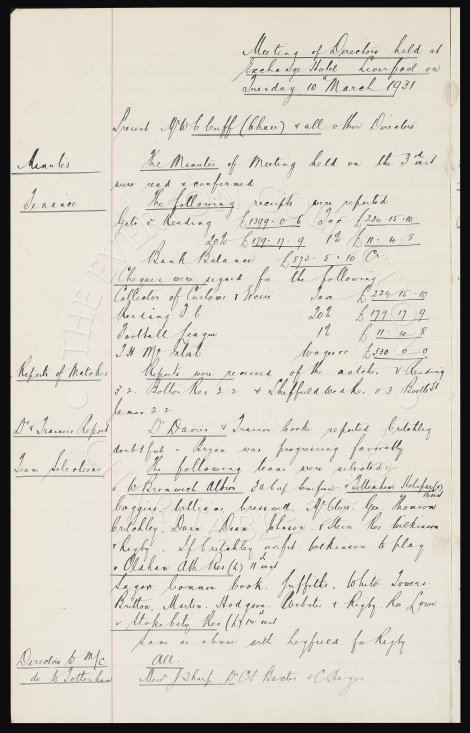 Meeting of Directors held at
Exchange Hotel Liverpool on
Tuesday 10th March 1931
Present Mr W C Cuff (Chair) & all other Directors
Minutes
The Minutes of Meeting held on the 3rd inst
were read & confirmed
Finance
The following receipts were reported
Gate v Reading £1399-0-6 Tax £224-15-10
20% £179-17-9 1% £11-4-8
Bank Balance 5-10 Cr
Cheques were signed for the following
Collector of Customs & Excise Tax £224 15 10
Reading F C 20% £179 17 9
Football League 1% £ 11 4 8
T H McIntosh Wages etc £330-0-0
Reports of Matches
Reports were received of the matches v Reading
3-2 Bolton Res 2-2 & Sheffield Weds Res 0-3 Bootle St
James 2-2
Dr & Trainers Report
Dr Davis & Trainer Cooke reported Critchley
doubtful Bryan was progressing favorably
Team Selections
The following teams were selected:-
v W Bromwich Albion 3rd Cup & Tottenham Hotspur (a)
Coggins Williams Cresswell McClure Gee Thomson
Critchley Dunn Dean Johnson & Stein Res Wilkinson
& Rigby. If Critchley unfit Wilkinson to play
v Oldham Ath Res (h) 11th inst
Sagar Common Cook Griffiths White Towers
Britton Martin Hodgson Webster & Rigby Res Lowe
v Stoke City Res (h) inst
Same as above with Leyfield for Rigby
Directors to M/c
All.
do to Tottenham
Messrs J Sharp Dr C S Baxter & C Sayer
THE EVERTON COLLECTION